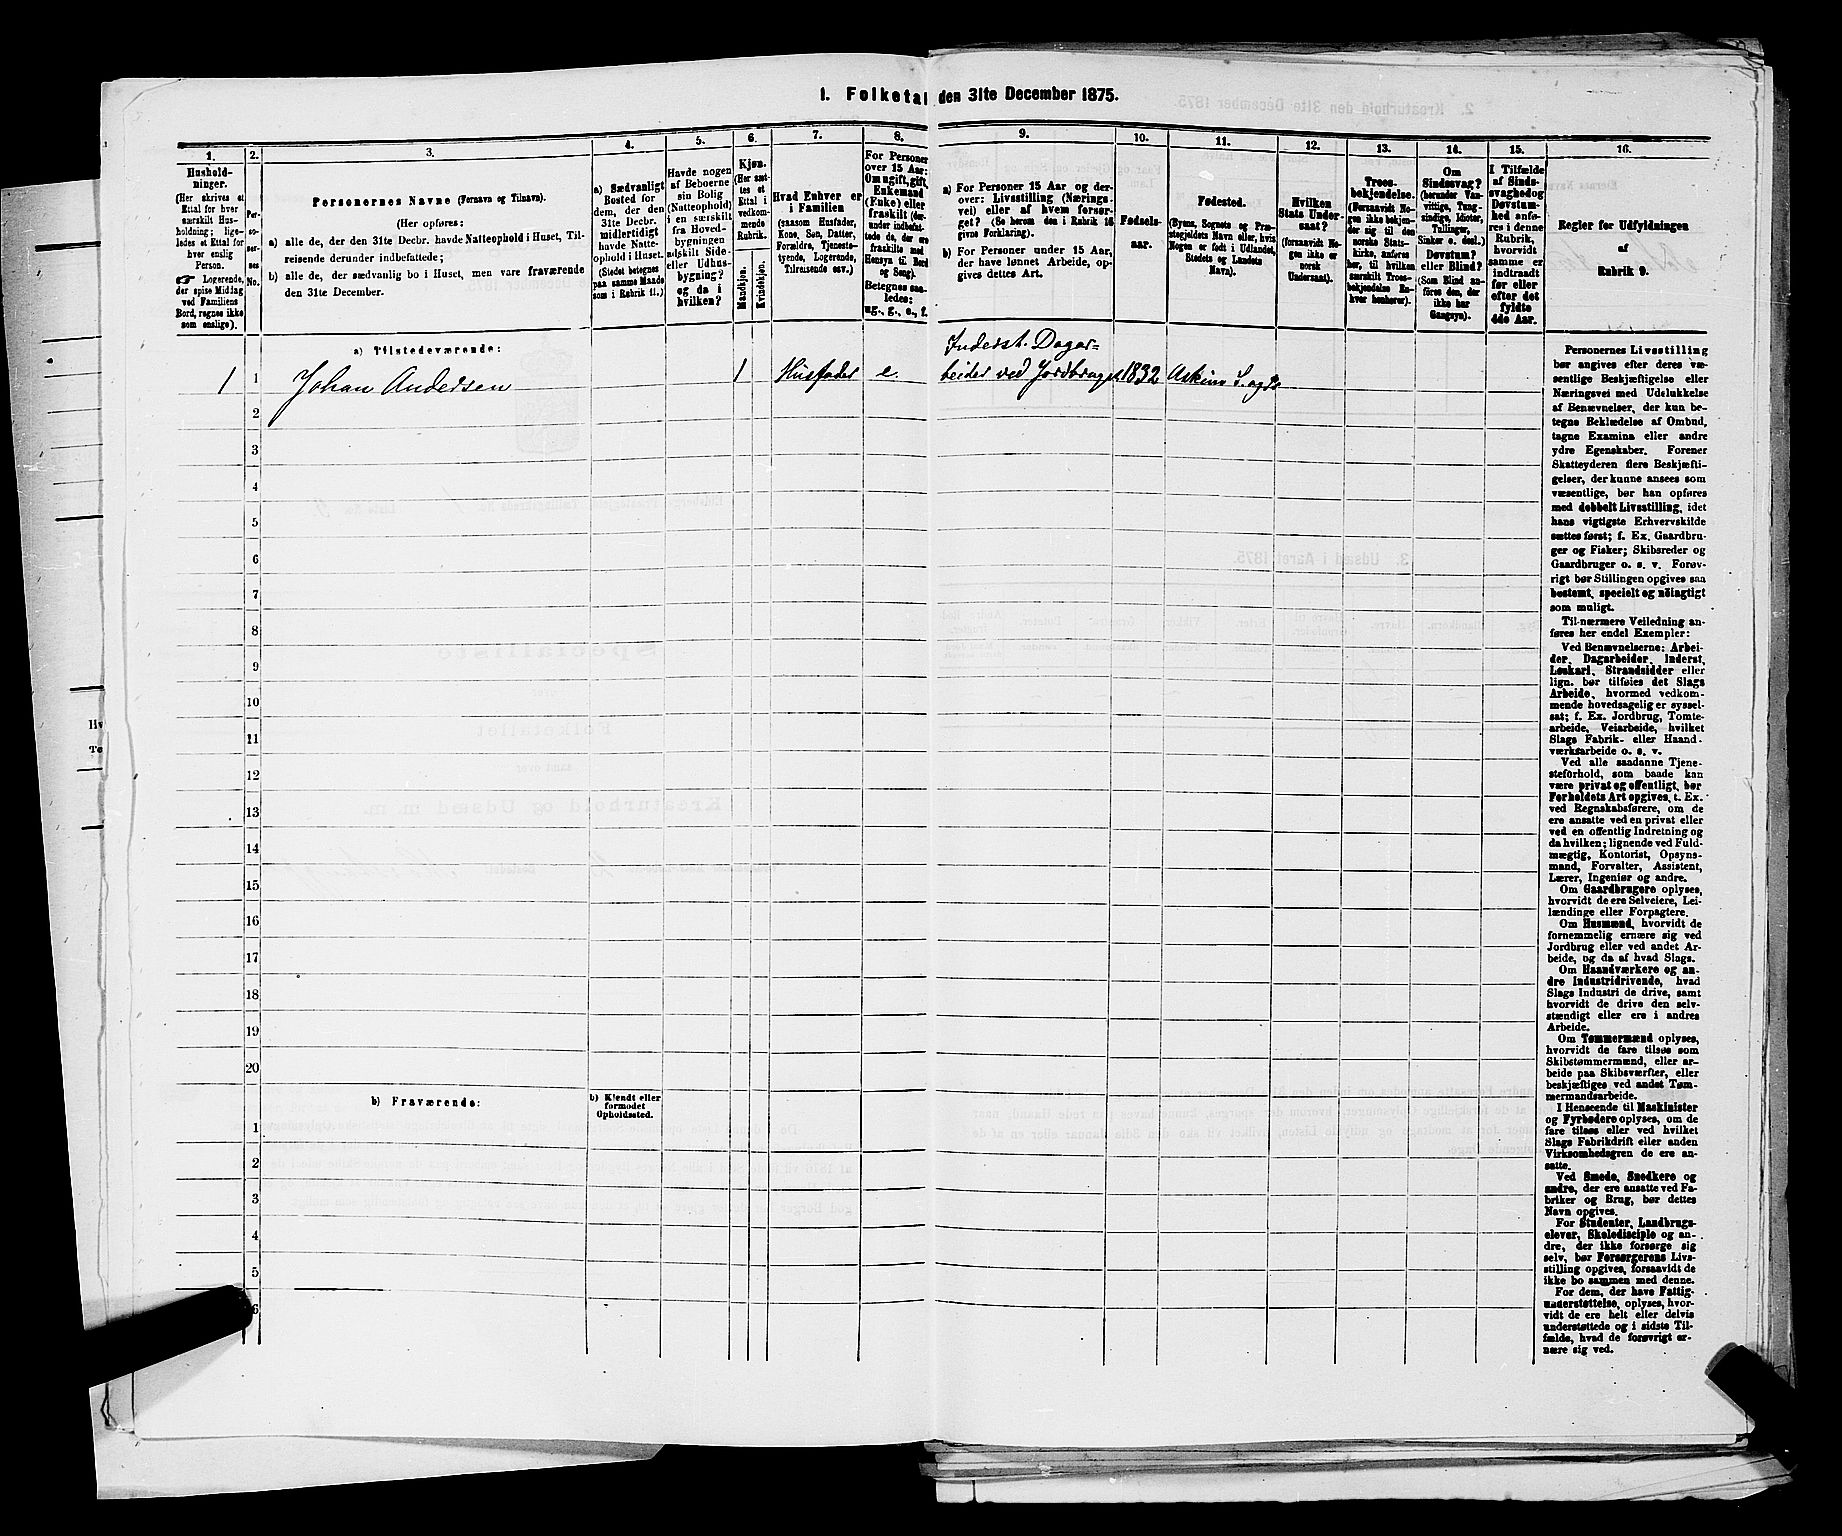 1. Folketal den 31te December 1875.
1.
Hushold-
ninger.
(Her skrives et
Ettal for hver
særskilt Hus-
holdning; lige-
ledes et Ettal for
hver enslig
Person.
☛ Logerende,
der spise Middag
ved Familiens
Bord, regnes ikke
som enslige).
2.
Per-
so-
ner-
nes
No.
3.
Personernes Navne (Fornavn og Tilnavn).
(Her opføres:
a) alle de, der den 31te Decbr. havde Natteophold i Huset, Til-
reisende derunder indbefattede;
b) alle de, der sædvanlig bo i Huset, men vare fraværende
den 31te December.
4.
a) Sædvanligt
Bosted for
dem, der den
31te Decbr.
midlertidigt
havde Natte-
ophold i Huset.
(Stedet betegnes
paa samme Maade
som i Rubrik 11.)
5.
Havde nogen
af Beboerne
sin Bolig
(Natteophold)
i en særskilt
fra Hoved-
bygningen
adskilt Side-
eller Udhus-
bygning?
og da i
hvilken?
6.
Kjøn.
(Her sæt-
tes et
Ettal i
vedkom-
mende
Rubrik.
Mandkjøn.
Kvindekjøn.
7.
Hvad Enhver er
i Familien
(saasom Husfader,
Kone, Søn, Datter,
Forældre, Tjeneste-
tyende, Logerende,
Tilreisende osv.)
8.
For Personer
over 15 Aar:
Om ugift, gift,
Enkemand
(Enke) eller
fraskilt (der-
under indbefat-
tede de, der ere
fraskilte med
Hensyn til Bord
og Seng).
Betegnes saa-
ledes:
ug., g., e., f.
9.
a) For Personer 15 Aar og der-
over: Livsstilling (Nærings-
vei) eller af hvem forsør-
get? (Se herom den i Rubrik 16
givne Forklaring).
b) For Personer under 15 Aar,
der have lønnet Arbeide, op-
gives dettes Art.
10.
Fødsels-
aar.
11.
Fødested.
(Byens, Sognets og Præ-
stegjeldets Navn eller, hvis
Nogen er født i Udlandet,
Stedets og Landets
Navn).
12.
Hvilken
Stats Under-
saat?
(forsaavidt No-
gen ikke er
norsk
Undersaat).
13.
Troes-
bekjendelse.
(Forsaavidt No-
gen ikke bekjen-
der sig til den
norske Stats-
Kirke, anføres
her, til hvilken
særskilt Troes-
bekjendelse En-
hver henhører).
14.
Om
Sindssvag?
(herunder Van-
vittige, Tung-
sindige, Idioter,
Tullinger,
Sinker o. desl.)
Døvstum?
eller Blind?
(Som Blind an-
føres den, der
ikke har
Gangsyn).
15.
I Tilfælde
af Sinds-
svaghed og
Døvstum-
hed anfø-
res i denne
Rubrik,
hvorvidt
samme er
indtraadt
før eller
efter det
fyldte
4de Aar.
16.
Regler for Udfyldningen
af
Rubrik 9.
a) Tilstedeværende:
1 1 Johan Andersen 1 Husfader e. Inderst. Dagar-
beider ved Jordbruget 1832 Askim S. og P.
2
3
4
5
6
7
8
9
10
11
12
13
14
15
16
17
18
19
20
b) Fraværende:
b) Kjendt eller
formodet
Opholdssted.
1
2
3
4
5
6
Personernes Livsstilling
bør angives efter deres væ-
sentlige Beskjæftigelse eller
Næringsvei med Udelukkelse
af Benævnelser, der kun be-
tegne Beklædelse af Ombud,
tagne Examina eller andre
ydre Egenskaber. Forener
Skatteyderen flere Beskjæfti-
gelser, der kunne ansees som
væsentlige, bør han opføres
med dobbelt Livsstilling, idet
hans vigtigste Erhvervskilde
sættes først; f. Ex. Gaardbru-
ger og Fisker; Skibsreder og
Gaardbruger o. s. v. Forøv-
rigt bør Stillingen opgives saa
bestemt, specielt og nøiagtigt
som muligt.
Til nærmere Veiledning an-
føres her endel Exempler:
Ved Benævnelserne: Arbei-
der, Dagarbeider, Inderst,
Løskarl, Strandsidder eller
lign. bør tilføies det Slags
Arbeide, hvormed vedkom-
mende hovedsagelig er syssel-
sat; f. Ex. Jordbrug, Tomte-
arbeide, Veiarbeide, hvilket
Slags Fabrik- eller Haand-
værksarbeide o. s. v.
Ved alle saadanne Tjene-
steforhold, som baade kan
være privat og offentligt, bør
Forholdets Art opgives, t. Ex.
ved Regnskabsførere, om de
ere ansatte ved en privat eller
ved en offentlig Indretning og
da hvilken; lignende ved Fuld-
mægtig, Kontorist, Opsyns-
mand, Forvalter, Assistent,
Lærer, Ingeniør og andre.
Om Gaardbrugere oplyses,
hvorvidt de ere Selveiere, Lei-
lændinge eller Forpagtere.
Om Husmænd, hvorvidt de
fornemmelig ernære sig ved
Jordbrug eller ved andet Ar-
beide, og da af hvad Slags.
Om Haandværkere og an-
dre Industridrivende, hvad
Slags Industri de drive, samt
hvorvidt de drive den selv-
stændigt eller ere i andres
Arbeide.
Om Tømmermænd oplyses,
hvorvidt de fare tilsøs som
Skibstømmermænd, eller ar-
beide paa Skibsværfter, eller
beskjæftiges ved andet Tøm-
mermandsarbeide.
I Henseende til Maskinister
og Fyrbødere oplyses, om de
fare tilsøs eller ved hvilket
Slags Fabrikdrift eller anden
Virksomhedsgren de ere an-
satte.
Ved Smede, Snedkere og
andre, der ere ansatte ved Fa-
briker og Brug, bør dettes
Navn opgives.
For Studenter, Landbrugs-
elever, Skoledisciple og an-
dre, der ikke forsørge sig
selv, bør Forsørgerens Livs-
stilling opgives, forsaavidt de
ikke bo sammen med denne.
For dem, der have Fattig-
understøttelse, oplyses, hvor-
vidt de ere helt eller delvis
understøttede og i sidste Til-
fælde, hvad de forøvrigt er-
nære sig ved.